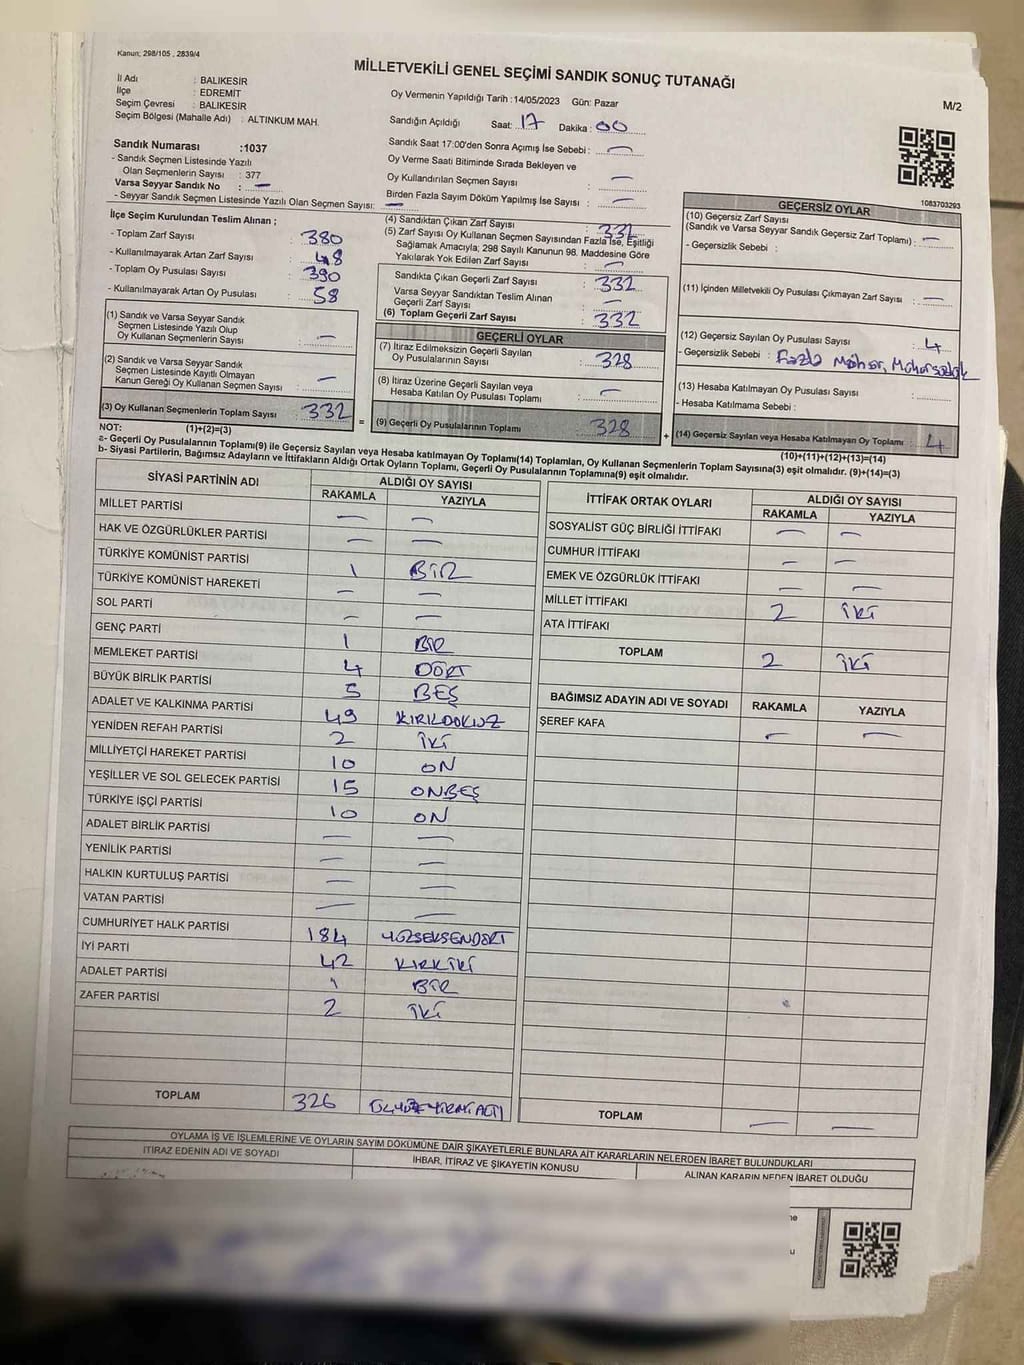 Kanun; 298/105 , 2839/4
MİLLETVEKİLİ GENEL SEÇİMİ SANDIK SONUÇ TUTANAĞI
M/2
İl Adı : BALIKESİR
İlçe : EDREMİT
Seçim Çevresi : BALIKESİR
Seçim Bölgesi (Mahalle Adı) : ALTINKUM MAH.
Oy Vermenin Yapıldığı Tarih :14/05/2023 Gün: Pazar
Sandığın Açıldığı Saat: 17 Dakika : 00
Sandık Numarası :1037
- Sandık Seçmen Listesinde Yazılı
Olan Seçmenlerin Sayısı : 377
Varsa Seyyar Sandık No : —
- Seyyar Sandık Seçmen Listesinde Yazılı Olan Seçmen Sayısı: —
Sandık Saat 17:00'den Sonra Açımış İse Sebebi : —
Oy Verme Saati Bitiminde Sırada Bekleyen ve
Oy Kullandırılan Seçmen Sayısı : —
Birden Fazla Sayım Döküm Yapılmış İse Sayısı : —
1083703293
İlçe Seçim Kurulundan Teslim Alınan ;
- Toplam Zarf Sayısı : 380
- Kullanılmayarak Artan Zarf Sayısı : 48
- Toplam Oy Pusulası Sayısı : 390
- Kullanılmayarak Artan Oy Pusulası : 58
(1) Sandık ve Varsa Seyyar Sandık
Seçmen Listesinde Yazılı Olup
Oy Kullanan Seçmenlerin Sayısı : —
(2) Sandık ve Varsa Seyyar Sandık
Seçmen Listesinde Kayıtlı Olmayan
Kanun Gereği Oy Kullanan Seçmen Sayısı : —
(3) Oy Kullanan Seçmenlerin Toplam Sayısı : 332
(4) Sandıktan Çıkan Zarf Sayısı : 332
(5) Zarf Sayısı Oy Kullanan Seçmen Sayısından Fazla İse, Eşitliği
Sağlamak Amacıyla; 298 Sayılı Kanunun 98. Maddesine Göre
Yakılarak Yok Edilen Zarf Sayısı : —
Sandıkta Çıkan Geçerli Zarf Sayısı : 332
Varsa Seyyar Sandıktan Teslim Alınan
Geçerli Zarf Sayısı : —
(6) Toplam Geçerli Zarf Sayısı : 332
GEÇERLİ OYLAR
(7) İtiraz Edilmeksizin Geçerli Sayılan
Oy Pusulalarının Sayısı : 328
(8) İtiraz Üzerine Geçerli Sayılan veya
Hesaba Katılan Oy Pusulası Toplamı : —
= (9) Geçerli Oy Pusulalarının Toplamı : 328
GEÇERSİZ OYLAR
(10) Geçersiz Zarf Sayısı
(Sandık ve Varsa Seyyar Sandık Geçersiz Zarf Toplamı) : —
- Geçersizlik Sebebi :
(11) İçinden Milletvekili Oy Pusulası Çıkmayan Zarf Sayısı : —
(12) Geçersiz Sayılan Oy Pusulası Sayısı : 4
- Geçersizlik Sebebi : Fazla Mühür,
(13) Hesaba Katılmayan Oy Pusulası Sayısı :
- Hesaba Katılmama Sebebi :
+ (14) Geçersiz Sayılan veya Hesaba Katılmayan Oy Toplamı : 4
NOT: (1)+(2)=(3)
(10)+(11)+(12)+(13)=(14)
a- Geçerli Oy Pusulalarının Toplamı(9) ile Geçersiz Sayılan veya Hesaba katılmayan Oy Toplamı(14) Toplamları, Oy Kullanan Seçmenlerin Toplam Sayısına(3) eşit olmalıdır. (9)+(14)=(3)
b- Siyasi Partilerin, Bağımsız Adayların ve İttifakların Aldığı Ortak Oyların Toplamı, Geçerli Oy Pusulalarının Toplamına(9) eşit olmalıdır.
SİYASİ PARTİNİN ADI ALDIĞI OY SAYISI
RAKAMLA YAZIYLA
MİLLET PARTİSİ — —
HAK VE ÖZGÜRLÜKLER PARTİSİ — —
TÜRKİYE KOMÜNİST PARTİSİ 1 BİR
TÜRKİYE KOMÜNİST HAREKETİ — —
SOL PARTİ — —
GENÇ PARTİ 1 BİR
MEMLEKET PARTİSİ 4 DÖRT
BÜYÜK BİRLİK PARTİSİ 5 BEŞ
ADALET VE KALKINMA PARTİSİ 49 KIRKDOKUZ
YENİDEN REFAH PARTİSİ 2 İKİ
MİLLİYETÇİ HAREKET PARTİSİ 10 ON
YEŞİLLER VE SOL GELECEK PARTİSİ 15 ONBEŞ
TÜRKİYE İŞÇİ PARTİSİ 10 ON
ADALET BİRLİK PARTİSİ — —
YENİLİK PARTİSİ — —
HALKIN KURTULUŞ PARTİSİ — —
VATAN PARTİSİ — —
CUMHURİYET HALK PARTİSİ 184 YÜZSEKSENDÖRT
İYİ PARTİ 42 KIRKİKİ
ADALET PARTİSİ 1 BİR
ZAFER PARTİSİ 2 İKİ
TOPLAM 326 ÜÇYÜZYİRMİALTI
İTTİFAK ORTAK OYLARI ALDIĞI OY SAYISI
RAKAMLA YAZIYLA
SOSYALİST GÜÇ BİRLİĞİ İTTİFAKI — —
CUMHUR İTTİFAKI — —
EMEK VE ÖZGÜRLÜK İTTİFAKI — —
MİLLET İTTİFAKI 2 İKİ
ATA İTTİFAKI
TOPLAM 2 İKİ
BAĞIMSIZ ADAYIN ADI VE SOYADI RAKAMLA YAZIYLA
ŞEREF KAFA — —
TOPLAM — —
OYLAMA İŞ VE İŞLEMLERİNE VE OYLARIN SAYIM DÖKÜMÜNE DAİR ŞİKAYETLERLE BUNLARA AİT KARARLARIN NELERDEN İBARET BULUNDUKLARI
İTİRAZ EDENİN ADI VE SOYADI
İHBAR, İTİRAZ VE ŞİKAYETİN KONUSU
ALINAN KARARIN NEDEN İBARET OLDUĞU